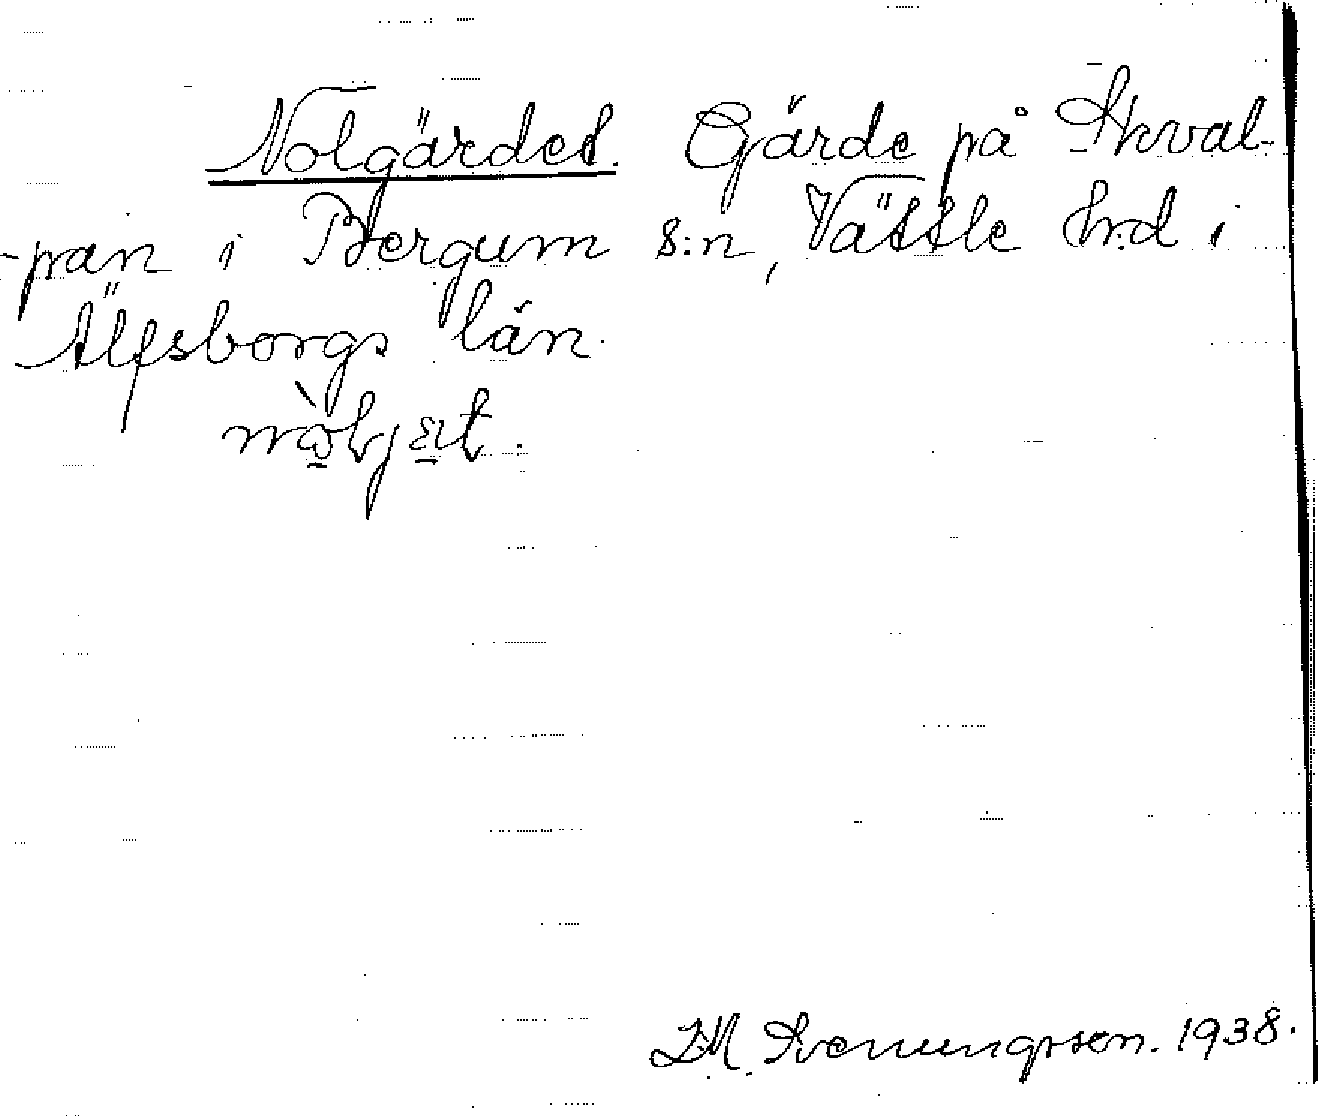 Nolgärdet. Gärde på Skval-
-pan i Bergum s:n, Vättle hrd i
Älfsborgs län.
L.M. Svenungsson. 1938.